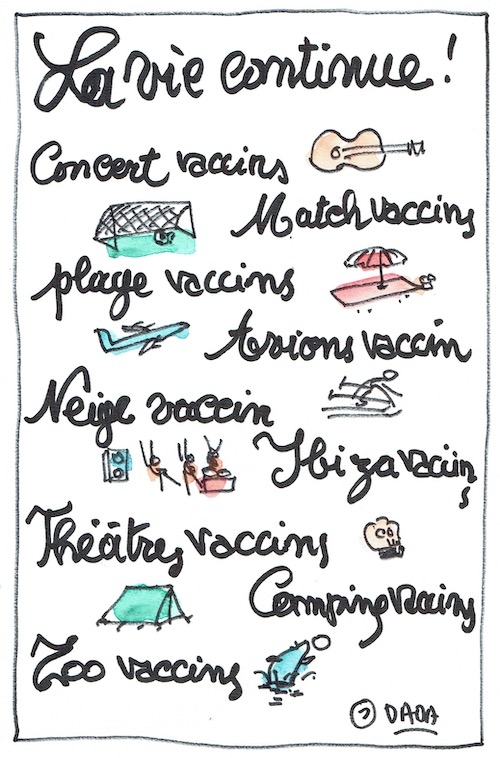 La vie continue !
Concert vaccins
Match vaccins
plage vaccins
Avions vaccin
Neige vaccin
Ibiza vaccins
Théâtres vaccins
Camping vaccins
Zoo vaccins
DADA